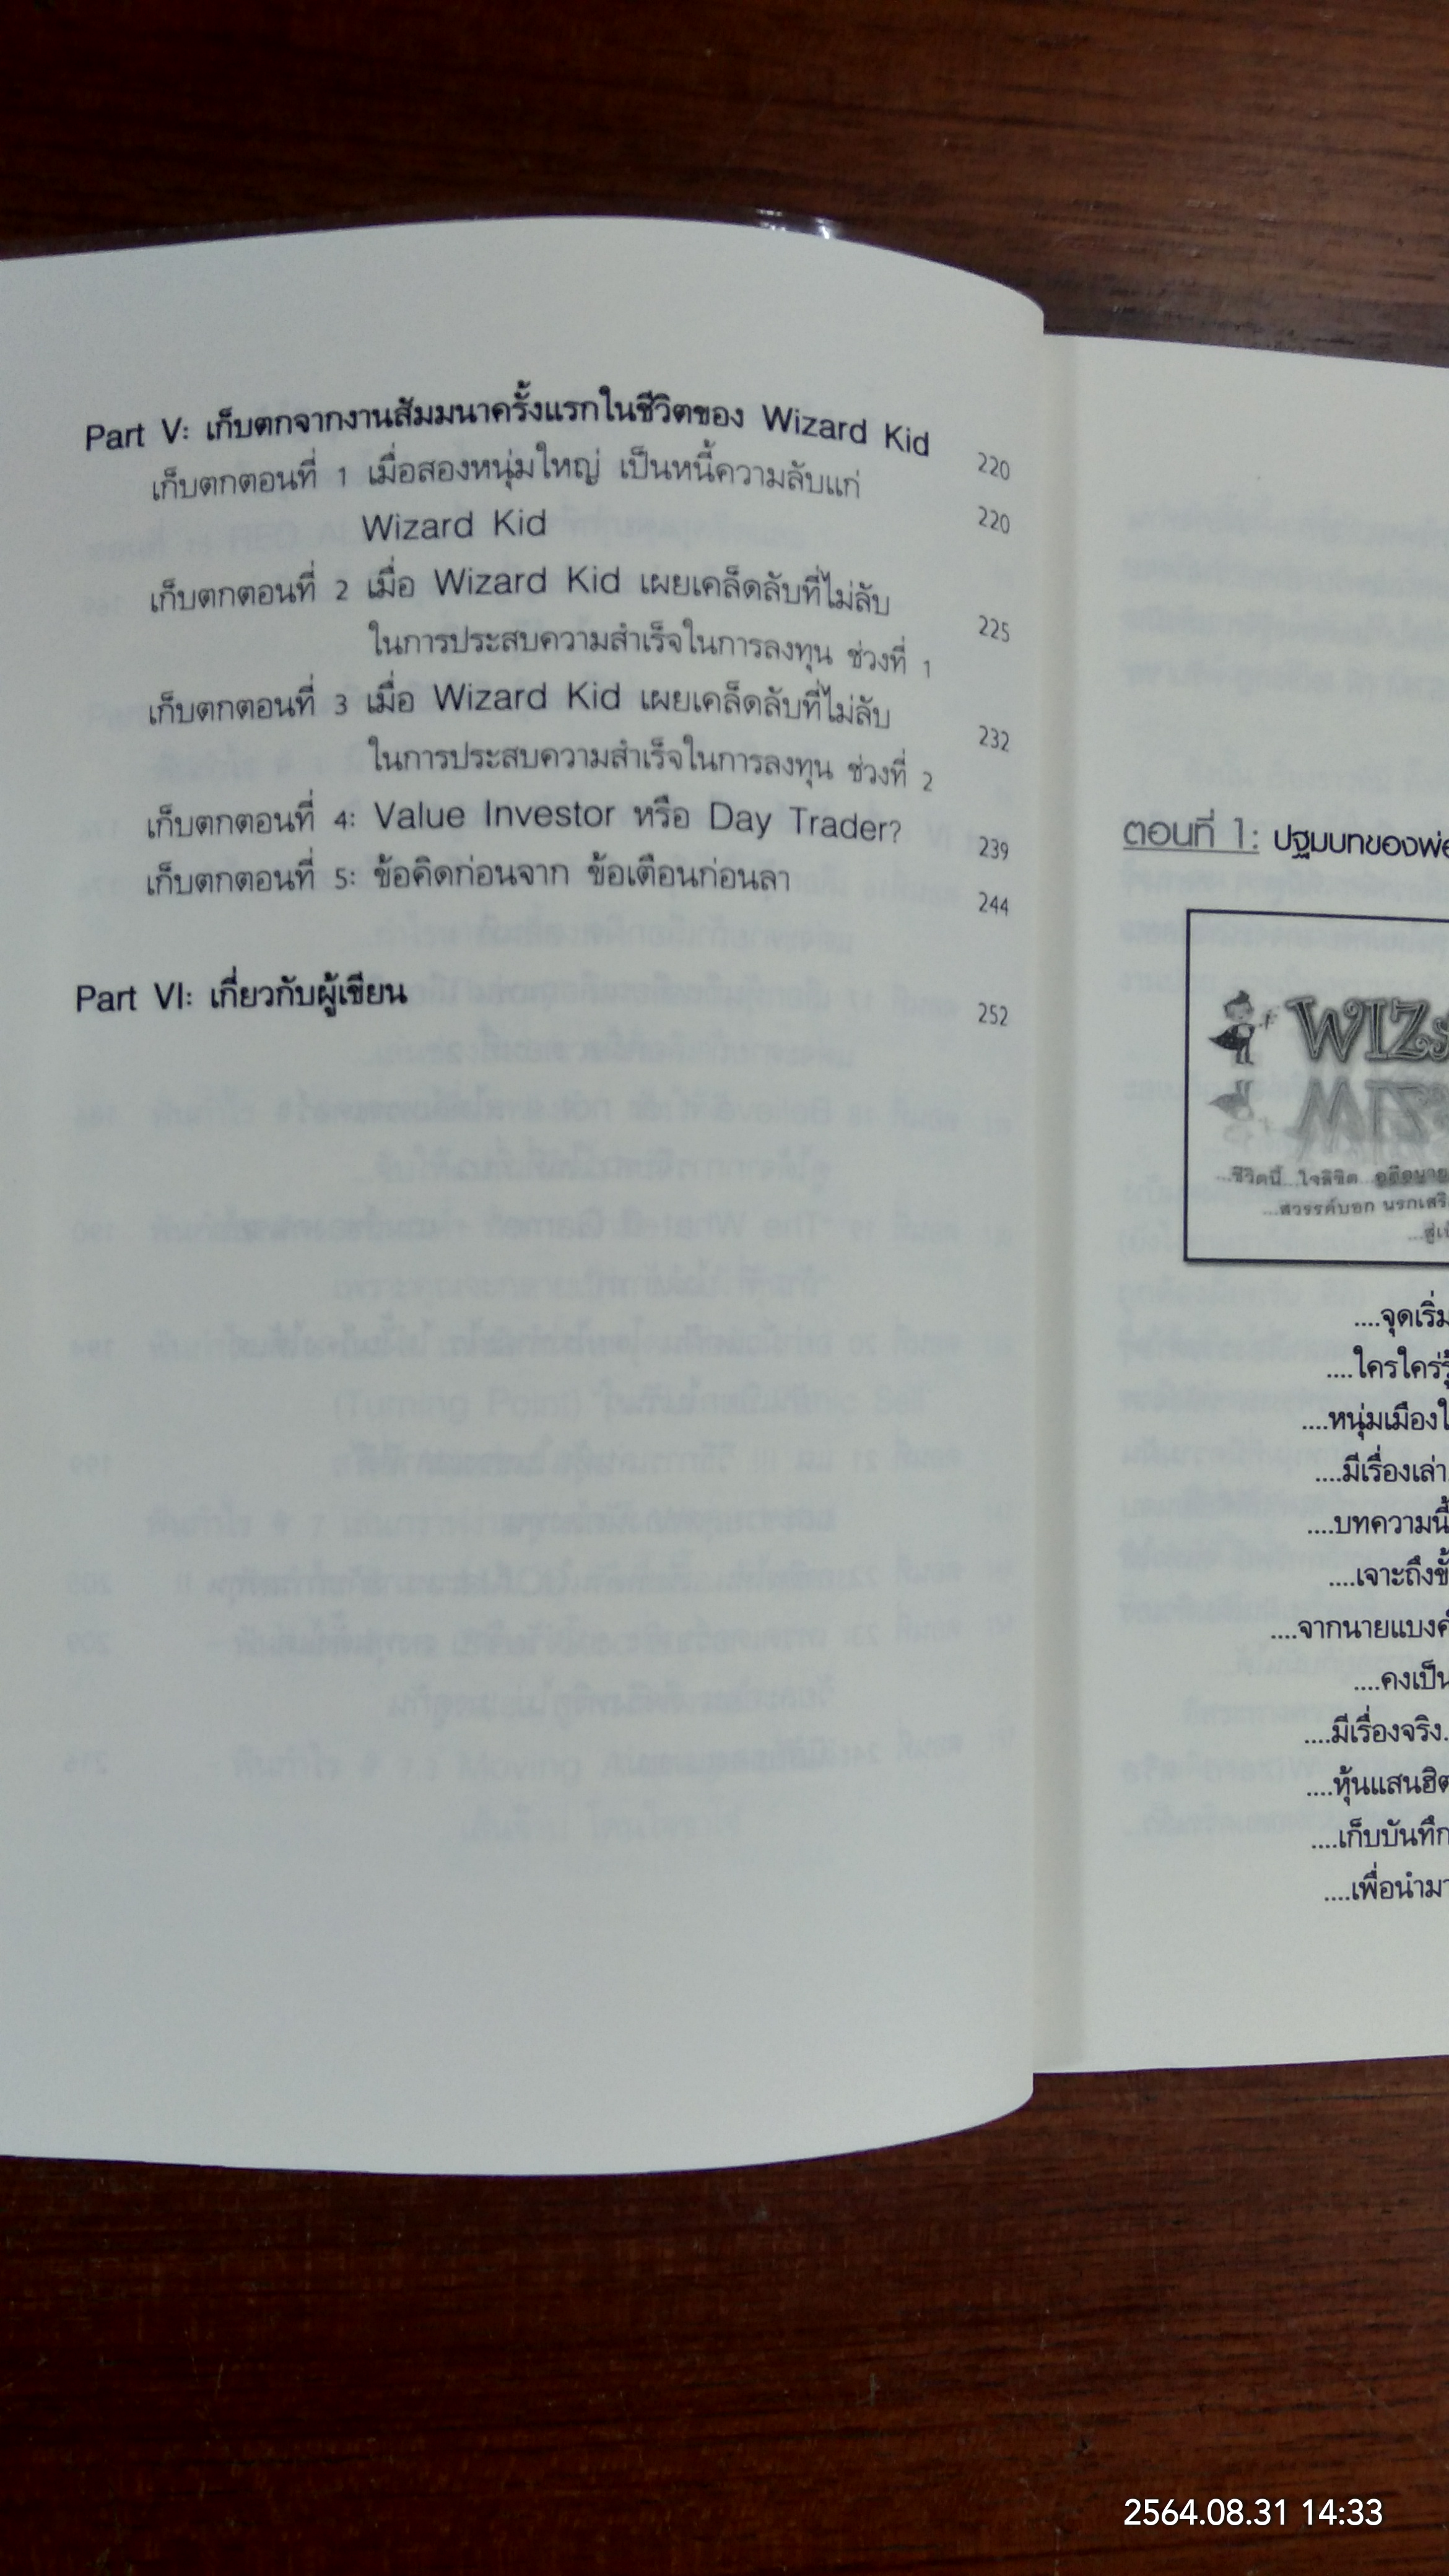 Part V: เก็บตกจากงานสัมมนาครั้งแรกในชีวิตของ Wizard Kid 220
เก็บตกตอนที่ 1 เมื่อสองหนุ่มใหญ่ เป็นหนี้ความลับแก่
Wizard Kid 220
เก็บตกตอนที่ 2 เมื่อ Wizard Kid เผยเคล็ดลับที่ไม่ลับ
ในการประสบความสำเร็จในการลงทุน ช่วงที่ 1 225
เก็บตกตอนที่ 3 เมื่อ Wizard Kid เผยเคล็ดลับที่ไม่ลับ
ในการประสบความสำเร็จในการลงทุน ช่วงที่ 2 232
เก็บตกตอนที่ 4: Value Investor หรือ Day Trader? 239
เก็บตกตอนที่ 5: ข้อคิดก่อนจาก ข้อเตือนก่อนลา 244
Part VI: เกี่ยวกับผู้เขียน 252
ตอนที่ 1: ปฐมบทของพ่อ
WIZ
...ชีวิตนี้...ใจลิขิต
...สวรรค์บอก นรกเสริ
....จุดเริ่ม
....ใครใคร่รู้
....หนุ่มเมืองใ
....มีเรื่องเล่า
....บทความนี้
....เจาะถึงขั้
....จากนายแบงค์
....คงเป็น
....มีเรื่องจริง.
....หุ้นแสนฮิต
....เก็บบันทึก
....เพื่อนำมา
2564.08.31 14:33